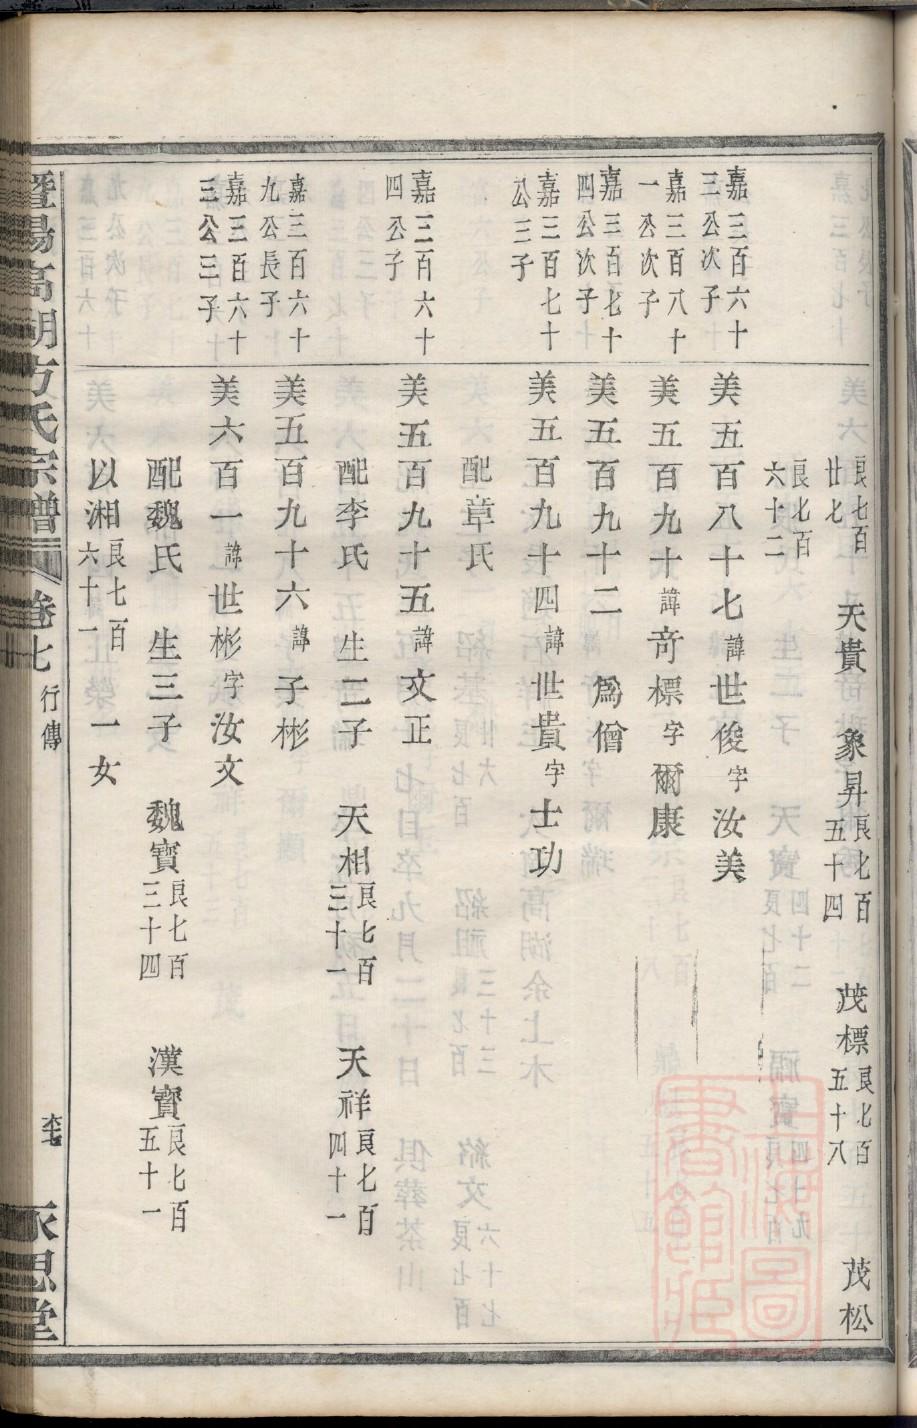 良七百廿七 天貴 象昇良七百五十四 茂標良七百五十八 茂松
良七百六十二
嘉三百六十三公次子 美五百八十七諱世俊字汝美
嘉三百八十一公次子 美五百九十諱奇標字爾康
嘉三百七十四公次子 美五百九十二 爲僧
嘉三百七十公三子 美五百九十四諱世貴字士功
配章氏
嘉三百六十四公子 美五百九十五諱文正
配李氏 生二子 天相良七百三十一 天祥良七百四十一
嘉三百六十九公長子 美五百九十六諱子彬
嘉三百六十三公三子 美六百一諱世彬字汝文
配魏氏 生三子 魏寶良七百三十四 漢寶良七百五十一
以湘良七百六十一 一女
暨陽高湖方氏宗譜 卷七 行傳 永思堂